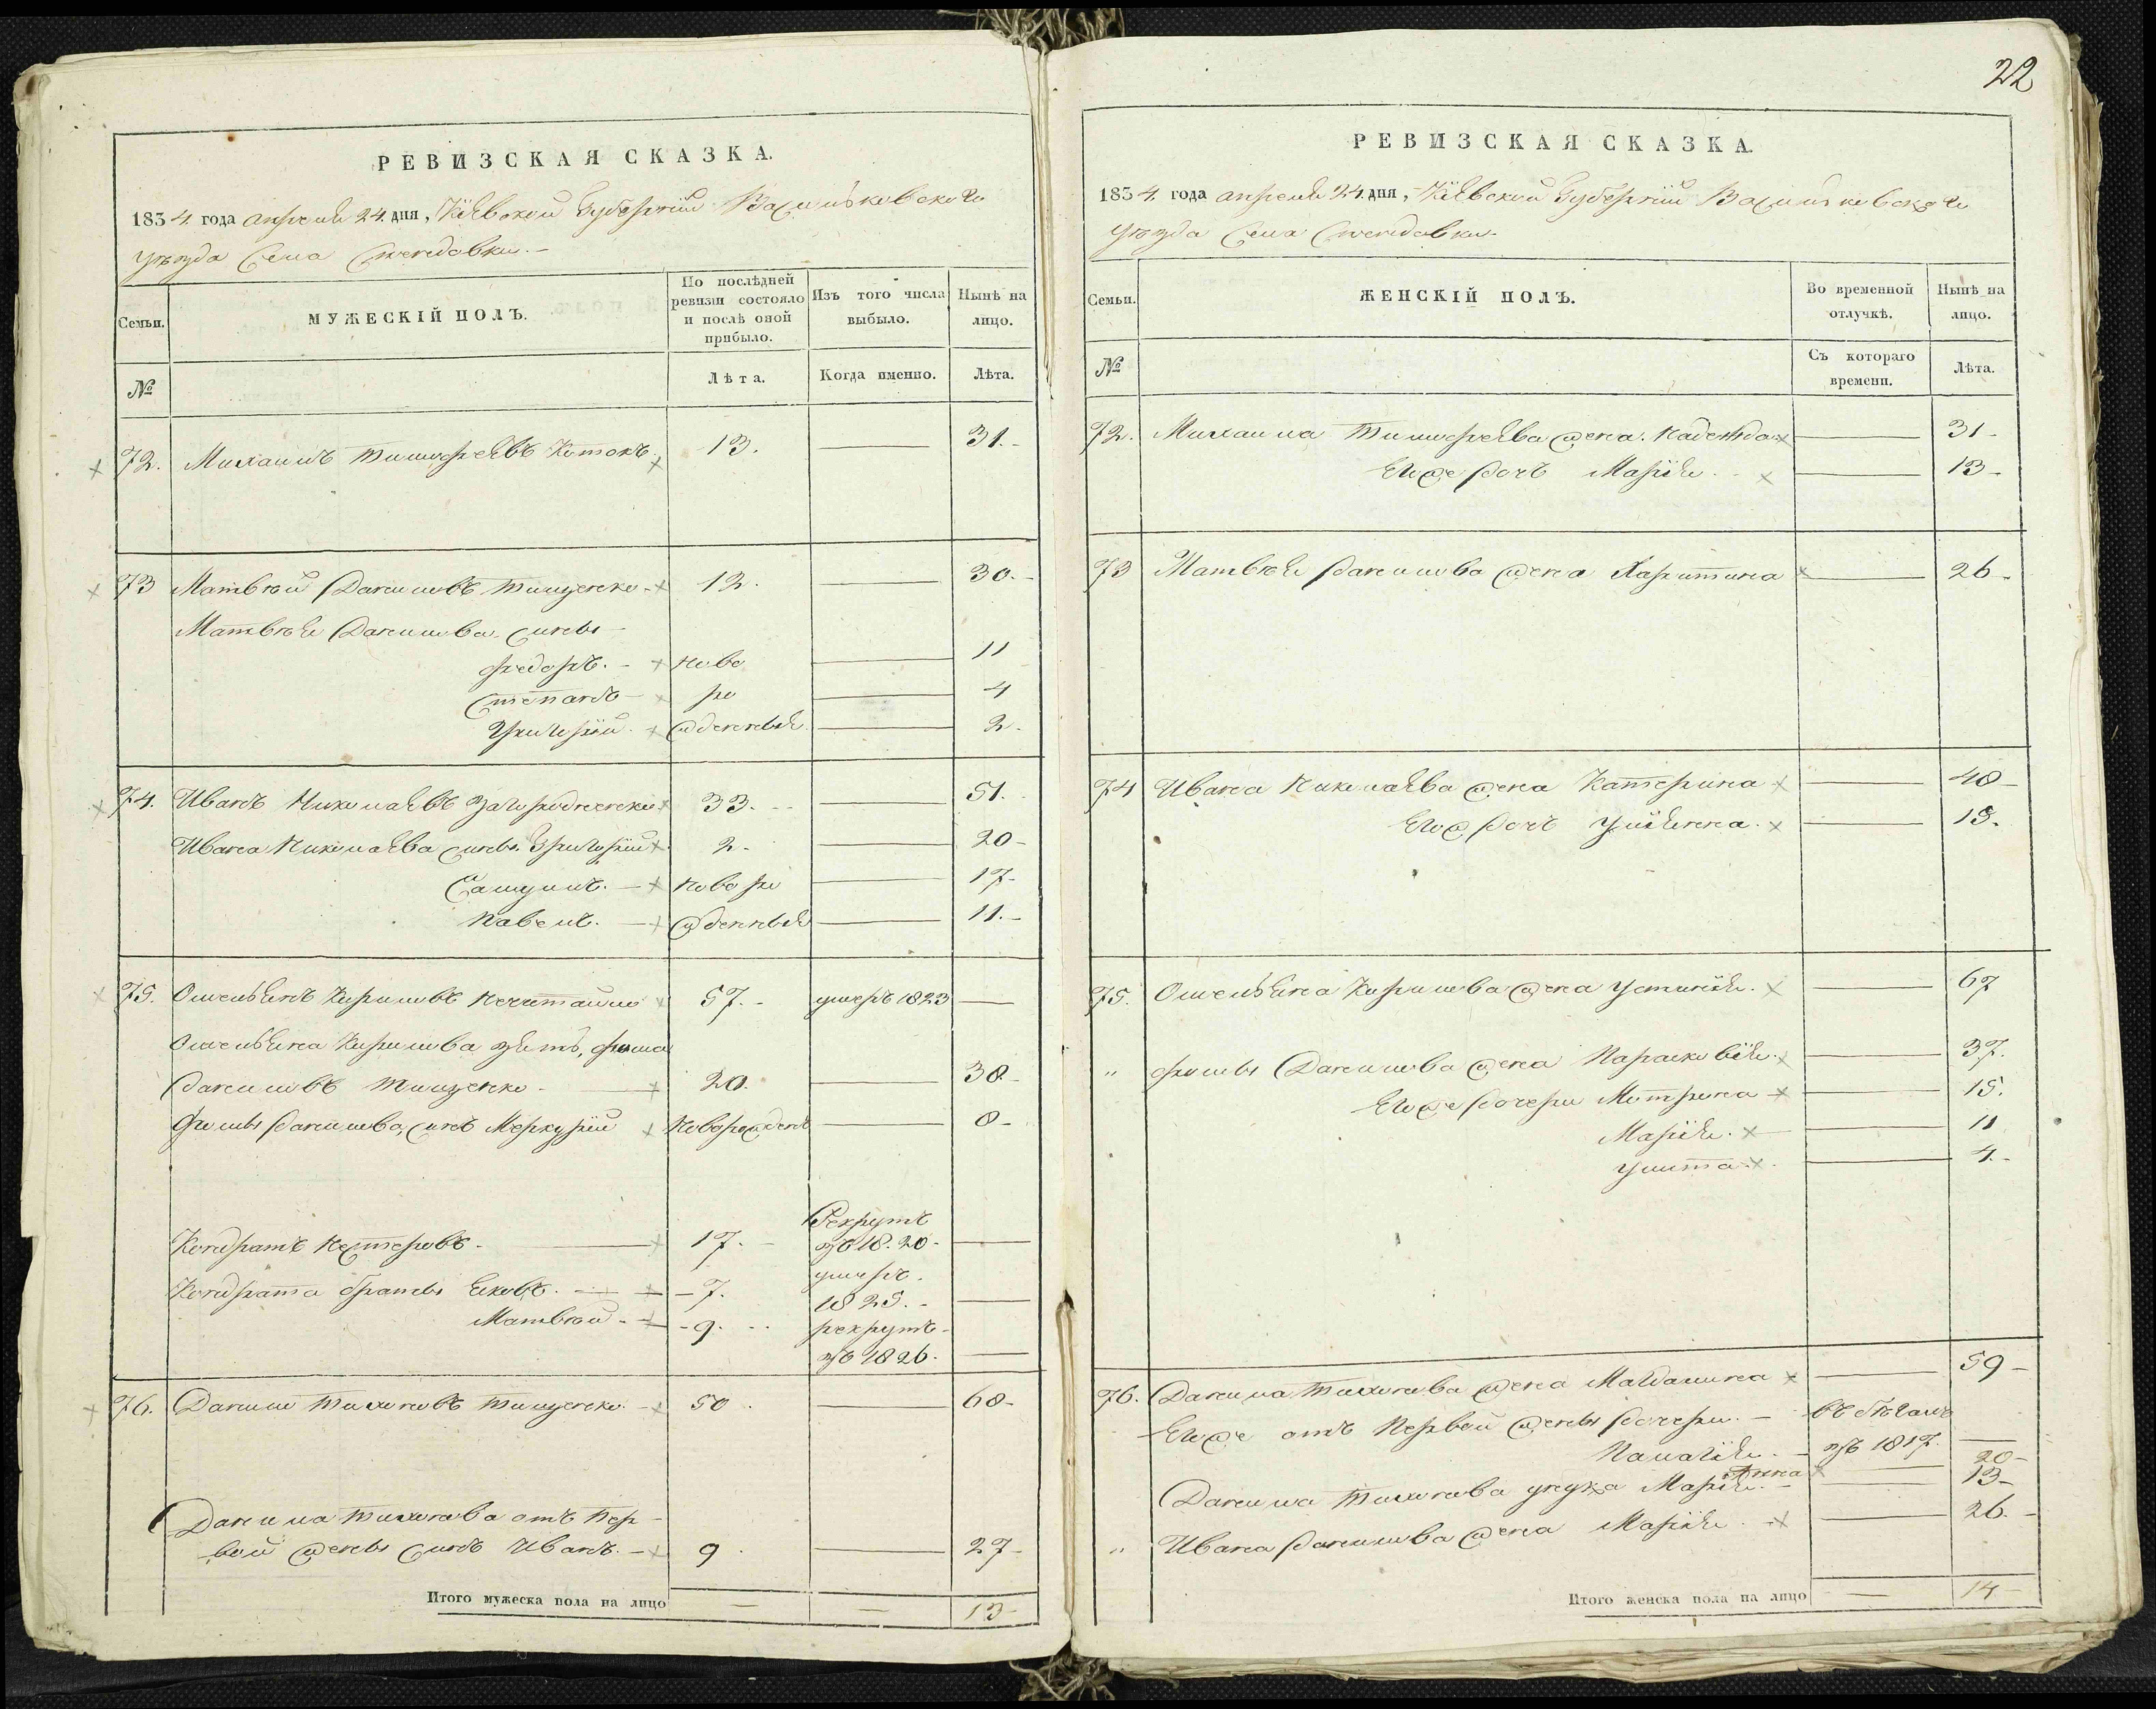 22
РЕВИЗСКАЯ СКАЗКА.
1834 года апреля 24 дня, Кіевской Губерніи Васильковского
уѣзда Села
Семьи.
МУЖЕСКІЙ ПОЛЪ.
По послѣдней
ревизіи состояло
и послѣ оной
прибыло.
Изъ того числа
выбыло.
Нынѣ на
лицо.
№
Лѣта.
Когда именно.
Лѣта.
72. Михаилъ Тимофеевъ Котокъ 13. 31.
73 Матвѣй Даниловъ Тищенко 12. 30.
Матвѣя Данилова сыновья
Федоръ. ново 11
Степанъ ро 4
Григорій жденныя 2.
74. Иванъ Николаевъ Загородненко 33. 51.
Ивана Николаева сыны Григорій 2. 20
Самуилъ. Ново ро 17
Павелъ. жденныя 11.
75. Омельянъ Кириловъ Нечитайло 57. умеръ 1823
Омельяна Кирилова зять, Фома
Даниловъ Тищенко 20. 38
Фомы Данилова, сынъ Меркурій Новорожденъ 8
Рекрутъ
Кондратъ Нестеровъ. 17. въ 1820
умеръ.
Кондрата братья Яковъ. 7. 1825.
Матвѣй 9. рекрутъ
въ 1826.
76. Данило Тихоновъ Тищенко. 50 68
Данила Тихонова отъ пер
вой жены сынъ Иванъ. 9 27
Итого мужеска пола на лицо 13
РЕВИЗСКАЯ СКАЗКА.
1834 года апреля 24 дня, Кіевской Губерніи Васильковского
уѣзда Села
Семьи.
ЖЕНСКІЙ ПОЛЪ.
Во временной
отлучкѣ.
Нынѣ на
лицо.
№
Съ котораго
времени.
Лѣта.
72. Михаила Тимофеева жена Надежда 31
Егоже дочь Марія 13
73 Матвѣя Данилова жена Харитина 26
74 Ивана Николаева жена Катерина 48
Его ж дочь Уліянна. 15.
75. Омельяна Кирилова жена Устинія. 67
" Фомы Данилова жена Парасковія 37.
Егоже дочери Мотрина 15.
Марія. 11
Улита 4.
76. Данила Тихонова жена Магдалина 59
Егоже отъ первой жены дочери въ бѣгахъ
Палагія. въ 1817.
Анна 20
Данила Тихонова унука Марія 13
" Ивана Данилова жена Марія 26.
Итого женска пола на лицо 14